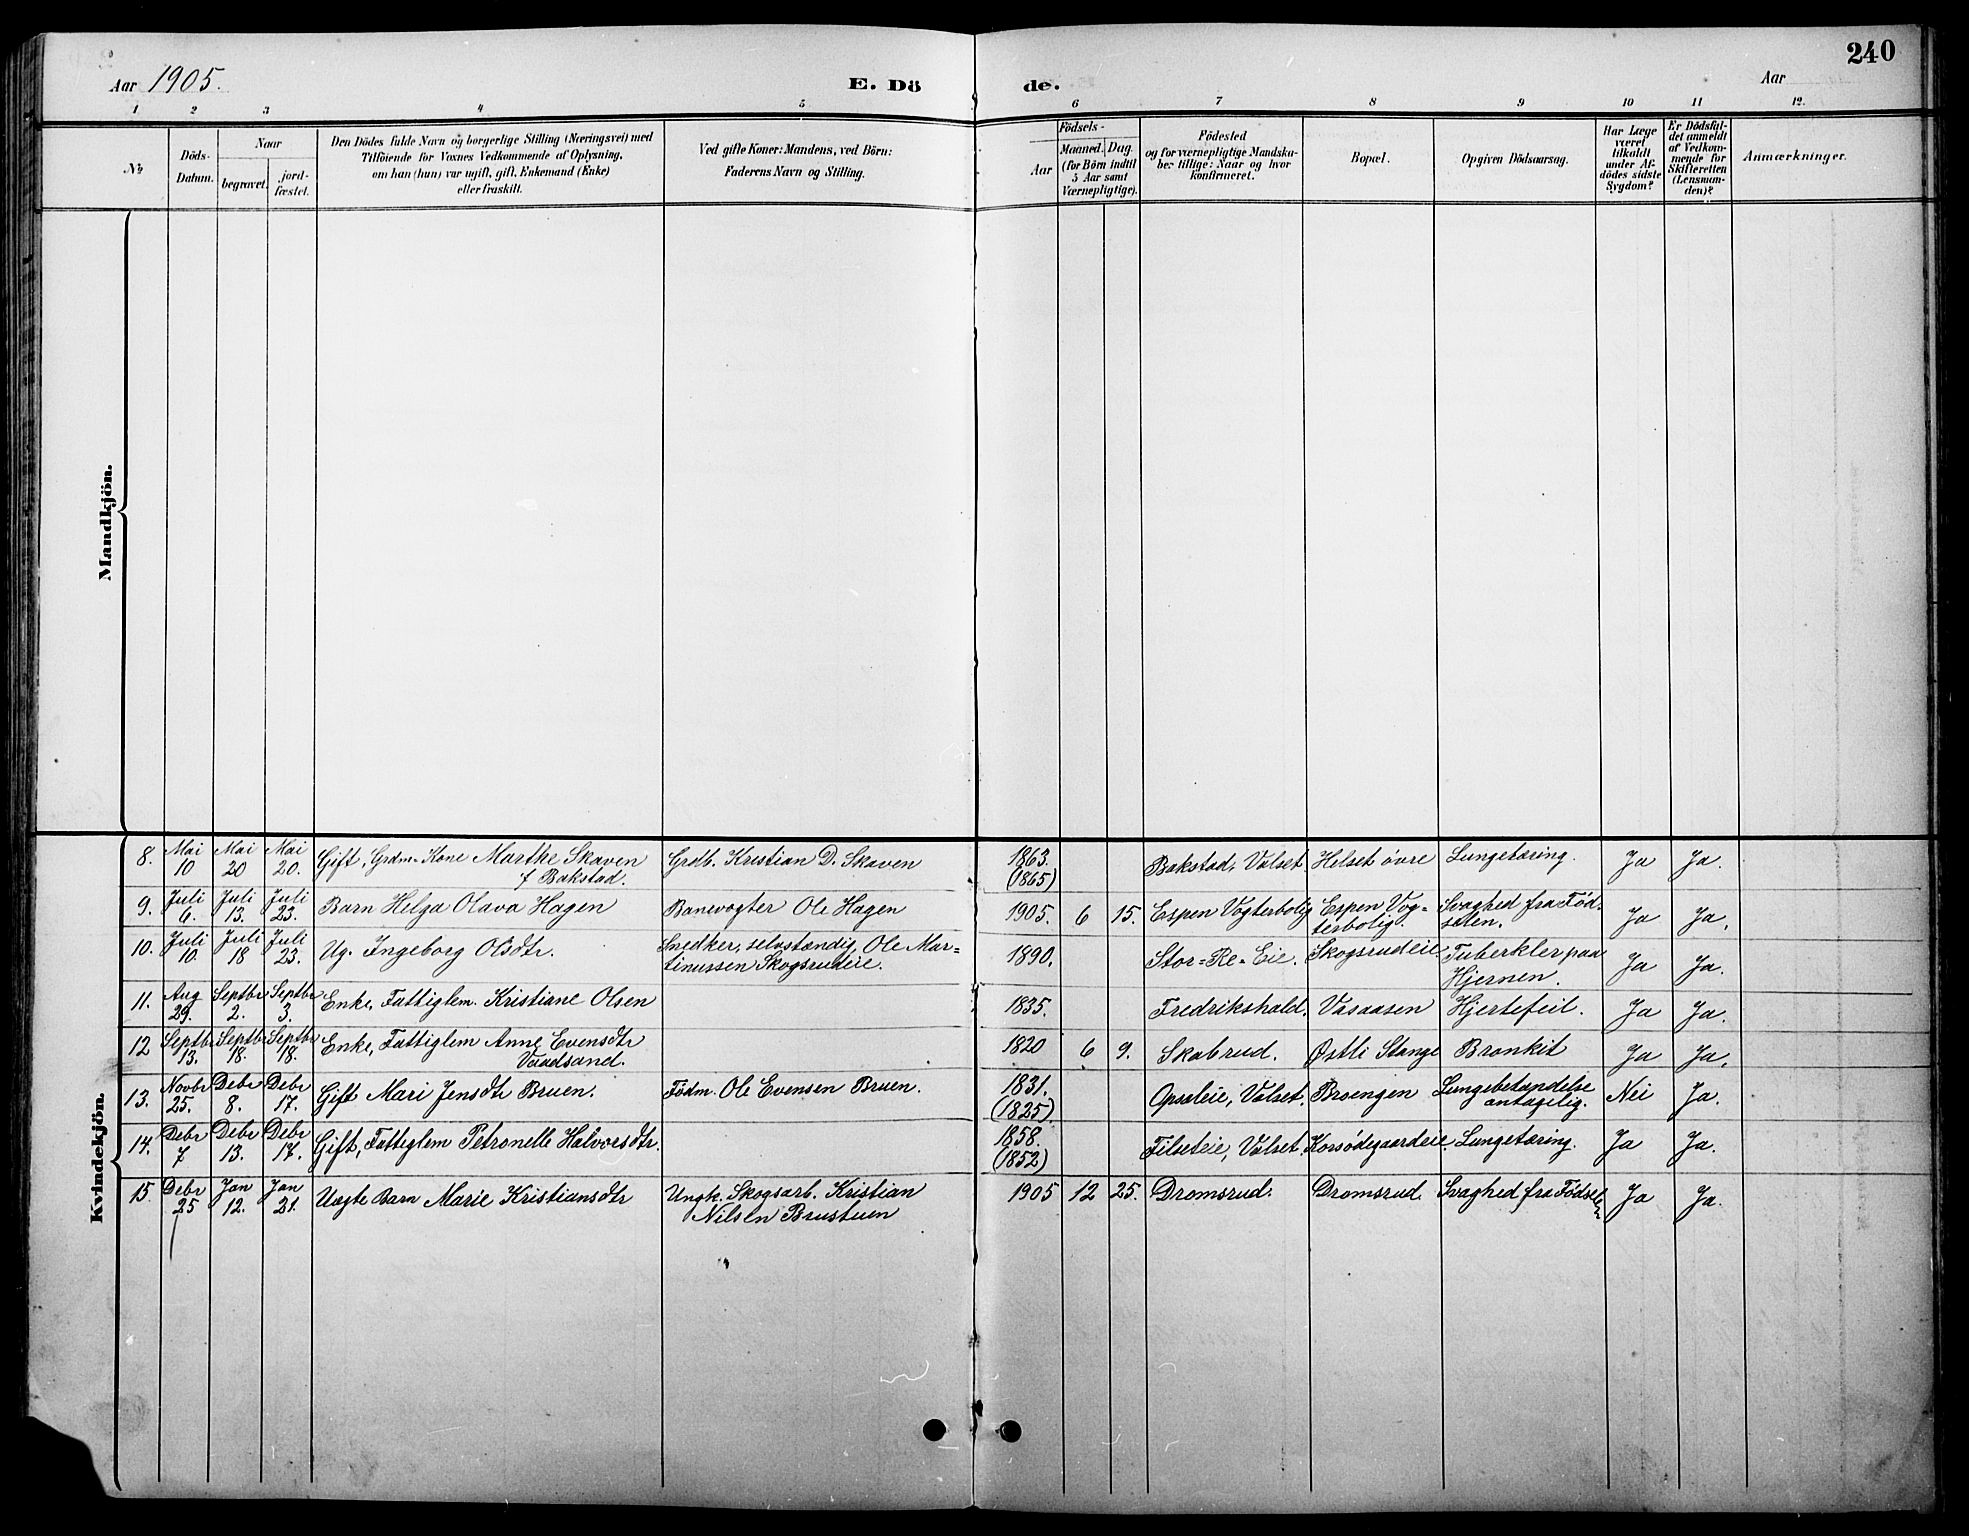 240
Aar 1905.
E. Dö de.
Aar
1 2 3 4 5 6 7 8 9 10 11 12.
No
Döds-
Datum.
Naar
begravet.
jord-
fæstet.
Den Dödes fulde Navn og borgerlige Stilling (Næringsvei) med
Tilföiende for Voxnes Vedkommende af Oplysning,
om han (hun) var ugift, gift, Enkemand (Enke)
eller fraskilt.
Ved gifte Koner: Mandens, ved Börn:
Faderens Navn og Stilling.
Födsels-
Aar
Maaned. Dag.
(for Börn indtil
5 Aar samt
Værnepligtige).
Födested
og for værnepligtige Mandska-
ber tillige: Naar og hvor
konfirmeret.
Bopæl.
Opgiven Dödsaarsag.
Har Læge
været
tilkaldt
under Af-
dödes sidste
Sygdom?
Er Dödsfal-
det anmeldt
af Vedkom-
mende for
Skifteretten
(Lensman-
den)?
Anmærkninger.
Mandkjön.
Kvindekjön.
8. Mai 10 Mai 20 Mai 20. Gift, Grdm. Kone Marthe Skaven
f Bakstad. Grdb. Kristian D. Skaven 1863. (1865) Bakstad, Valset Helset övre Lungetæring. Ja Ja.
9. Juli 6. Juli 13. Juli 23. Barn Helga Olava Hagen Banevogter Ole Hagen 1905. 6 15. Espen Vogterbolig Espen Vog-
terbolig. Svaghed fra Föd-
selen. Ja Ja.
10. Juli 10. Juli 18 Juli 23. Ug. Ingeborg Olsdtr. Snedker, selvstændig, Ole Mar-
tinussen Skogsrudeie. 1890. Stor-Re-Eie. Skogsrudeie Tuberkler paa
Hjernen. Ja Ja.
11. Aug 29. Septbr 2. Septbr 3. Enke, Fattiglem. Kristiane Olsen 1835. Fredrikshald. Vasaasen Hjertefeil. Ja Ja.
12 Septbr 13. Septbr 18. Septbr 18. Enke, Fattiglem Anne Evensdtr
Vaadsand. 1820 6 9. Skabrud. Østli Stange Bronkit Ja Ja.
13. Novbr 25. Debr 8. Debr 17. Gift Mari Jensdtr Bruen. Födm. Ole Evensen Bruen. 1831. (1825) Opsaleie, Valset. Broengen Lungebetændelse
antagelig. Nei Ja.
14. Debr 7 Debr 13. Debr 17. Gift, Fattiglem Petronelle Halvorsdtr. 1858. (1852) Filseteie, Valset. Korsödegaardeie. Lungetæring. Ja Ja.
15. Debr 25 Jan 12. Jan 21. Uægte Barn Marie Kristiansdtr Ungk. Skogsarb. Kristian
Nilsen Brustuen 1905 12 25. Dromsrud. Dromsrud. Svaghed fra Födselen Ja Ja.